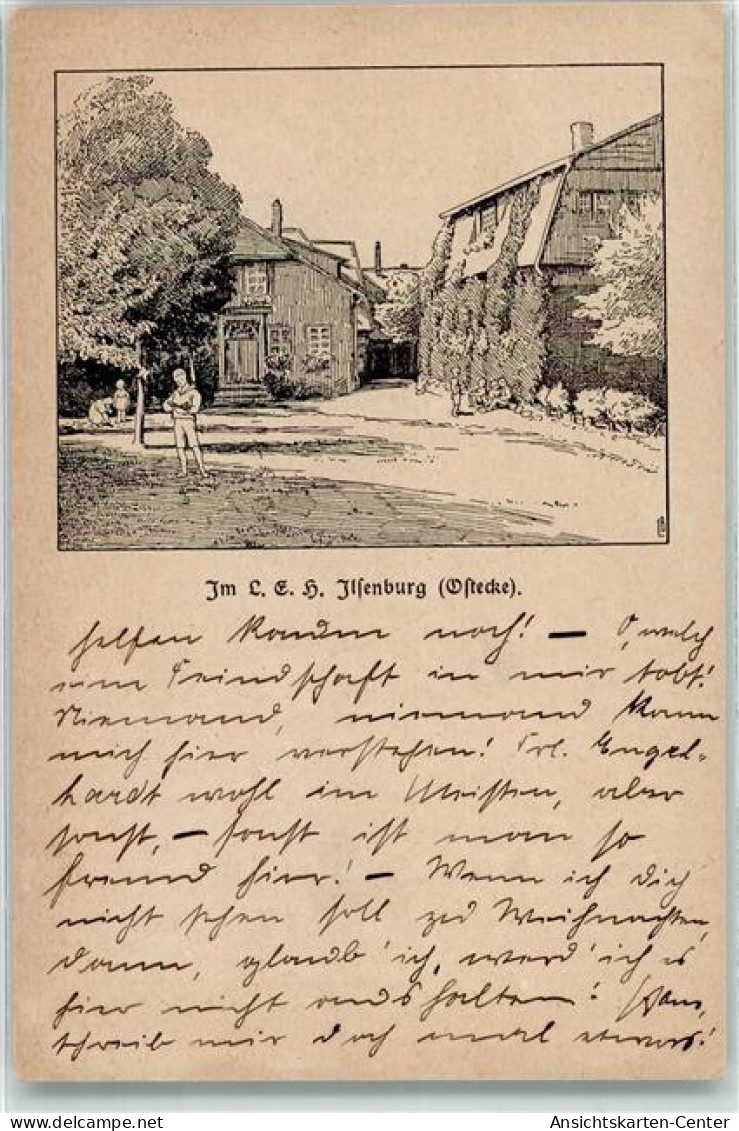 Im L. E. H. Ilsenburg (Ostecke).
helfen kann noch! — O, welch
eine Feindschaft in mir tobt!
Niemand, niemand kann
mich hier verstehen! Frl. Engel-
hardt wohl am Meisten, aber
sonst, — sonst ist man so
fremd hier! — Wenn ich dich
nicht sehen soll zu Weihnachten,
dann, glaub' ich, werd' ich es
hier nicht aushalten!
schreib mir doch mal etwas!
Ansichtskarten-Center